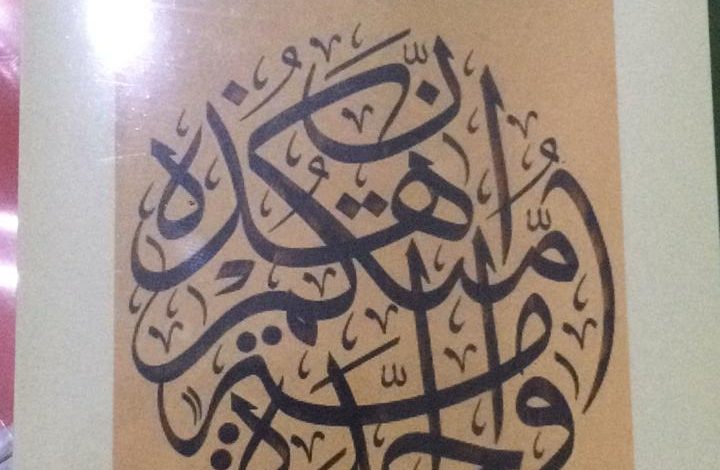 إِنَّ هَذِهِ أُمَّتُكُمْ أُمَّةً وَاحِدَةً